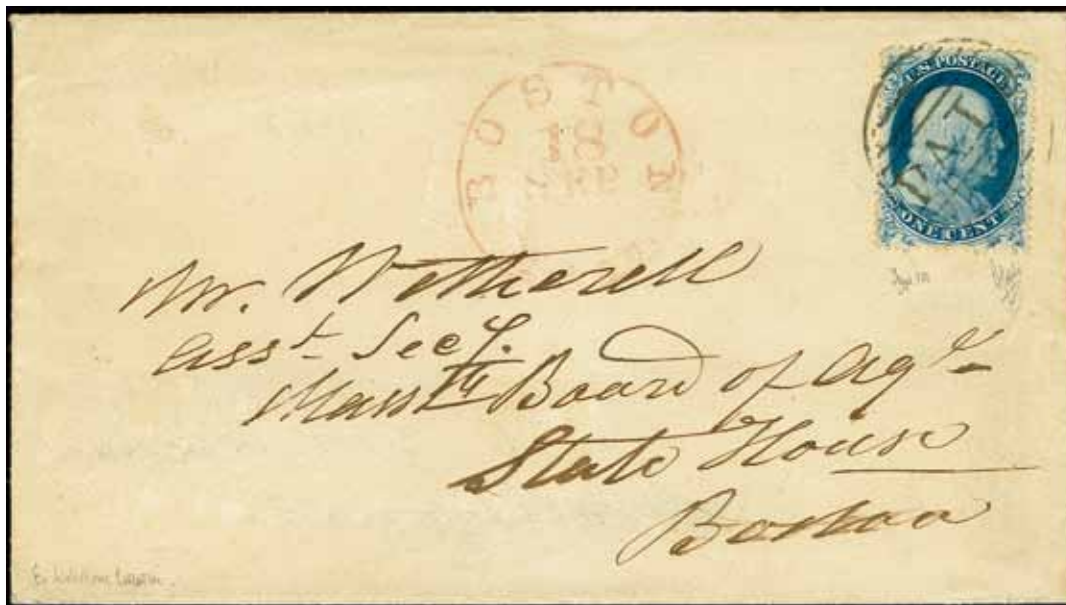 BOSTON
18
SEP
U.S. POSTAGE
PAID
ONE CENT
Mr. Wetherell
Asst. Secy.
Masstts Board of Agre
State House
Boston
Type